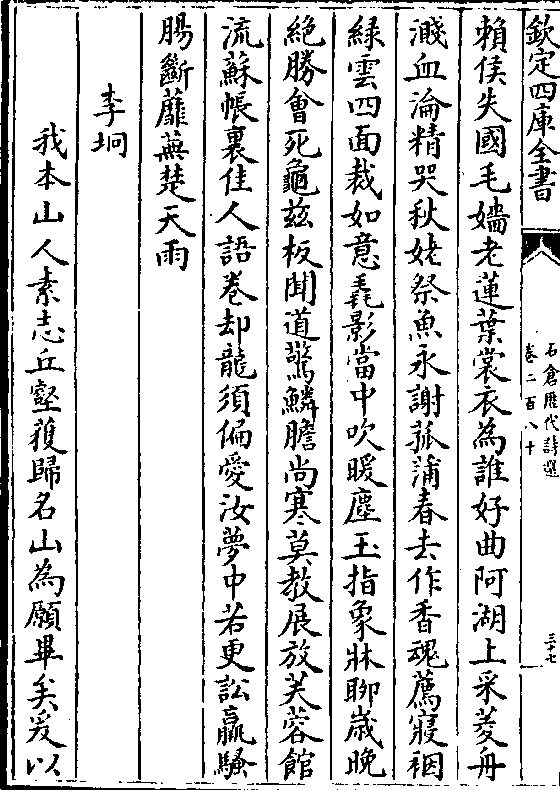 欽定四庫全書
石倉歷代詩選
卷二百八十
三十七
賴侯失國毛嬙老蓮葉裳衣為誰好曲阿湖上采菱舟
濺血淪精哭秋姥祭魚永謝菰蒲春去作香魂薦寢裀
綠雲四面裁如意毳影當中吹暖塵玉指象牀聊歲晚
絶勝會死龜茲板聞道驚鱗膽尚寒莫教展放芙蓉館
流蘇帳裏佳人語卷却龍須偏愛汝夢中若更訟羸騷
腸斷蘼蕪楚天雨
李坰
我本山人素志丘壑獲歸名山為願畢矣爰以